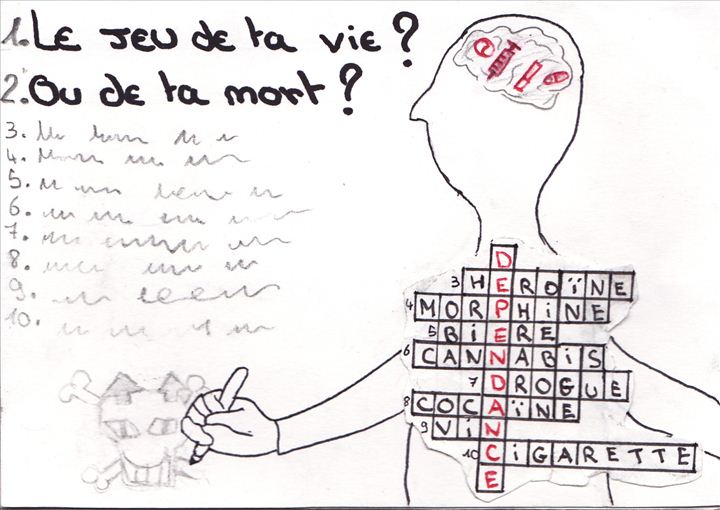 1. Le jeu de ta vie ?
2. Ou de ta mort ?
3.
4.
5.
6.
7.
8.
9.
10.
DEPENDANCE
3 HEROÏNE
4 MORPHiNE
5 BiERE
6 CANNABiS
7 DROGUE
8 COCAÏNE
9 ViN
10 CiGARETTE